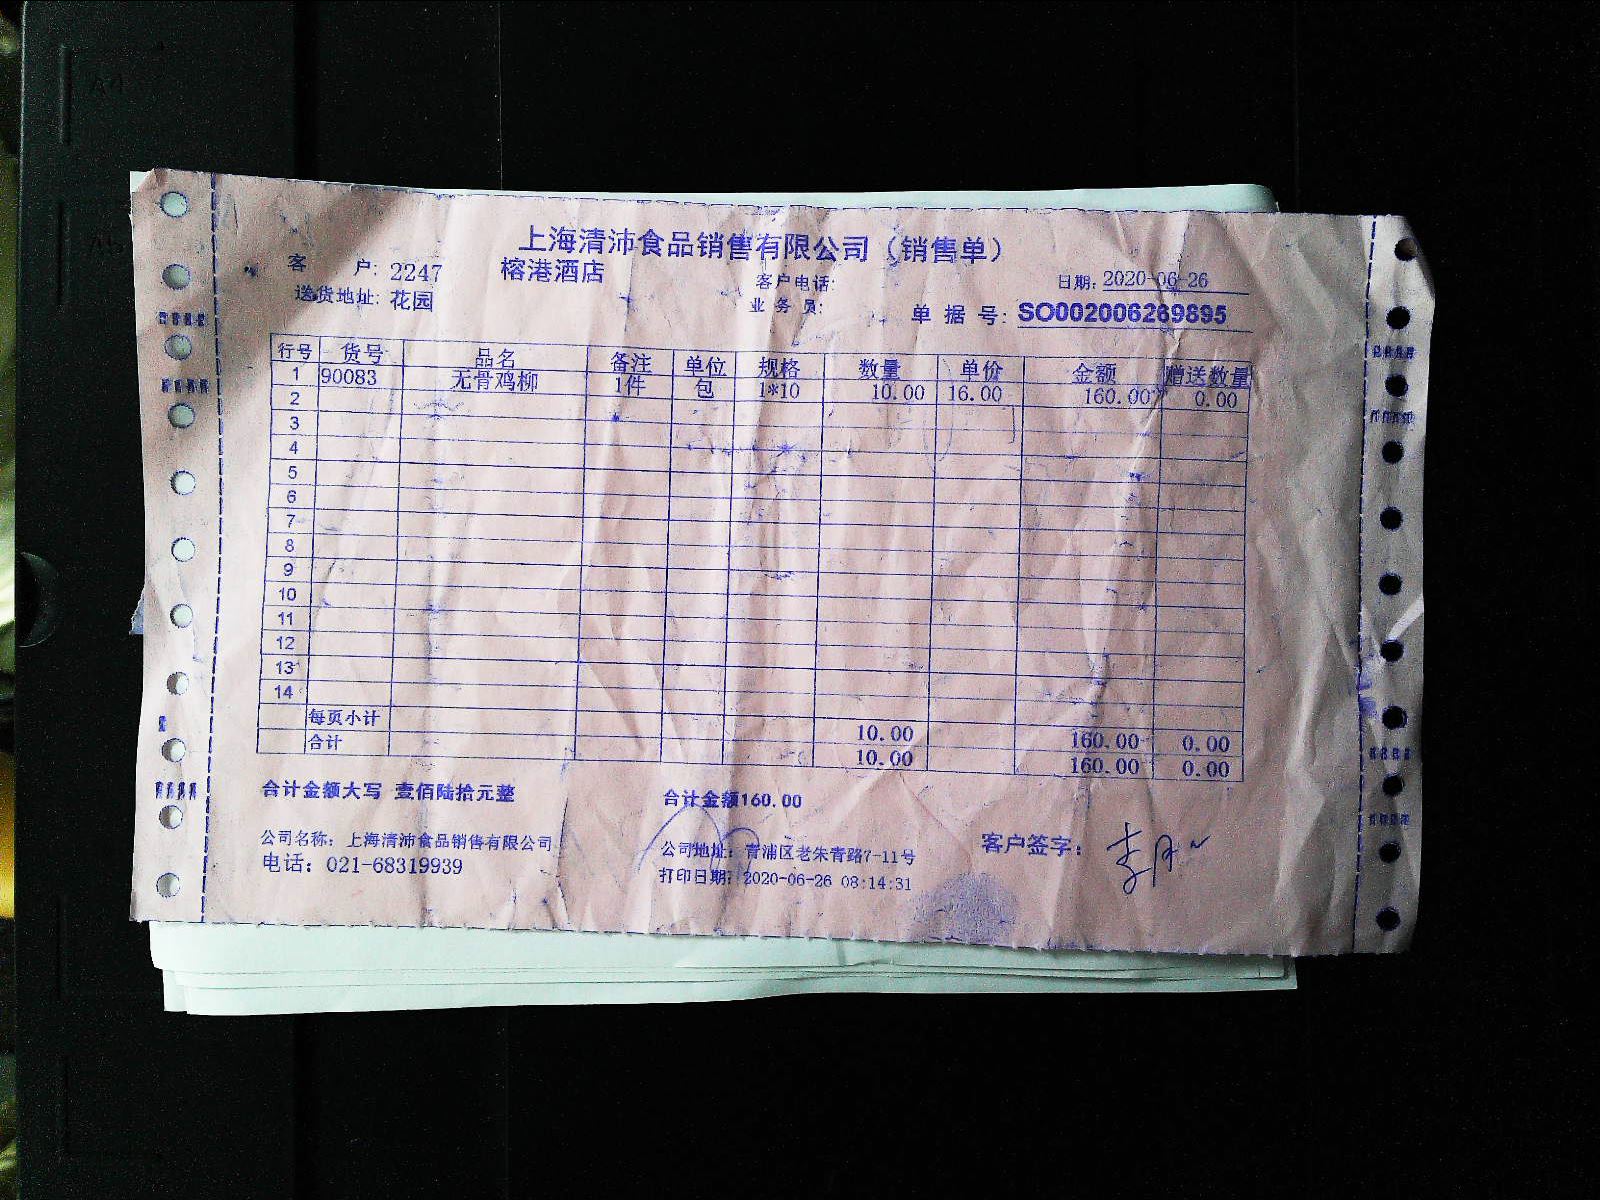 上海清沛食品销售有限公司（销售单）
客 户: 2247 榕港酒店 客户电话: 日期: 2020-06-26
送货地址: 花园 业 务 员: 单 据 号: SO002006269895
行号 货号 品名 备注 单位 规格 数量 单价 金额 赠送数量
1 90083 无骨鸡柳 1件 包 1*10 10.00 16.00 160.00 0.00
2
3
4
5
6
7
8
9
10
11
12
13
14
每页小计 10.00 160.00 0.00
合计 10.00 160.00 0.00
合计金额大写 壹佰陆拾元整 合计金额160.00
公司名称: 上海清沛食品销售有限公司 公司地址: 青浦区老朱青路7-11号 客户签字:
电话: 021-68319939 打印日期: 2020-06-26 08:14:31